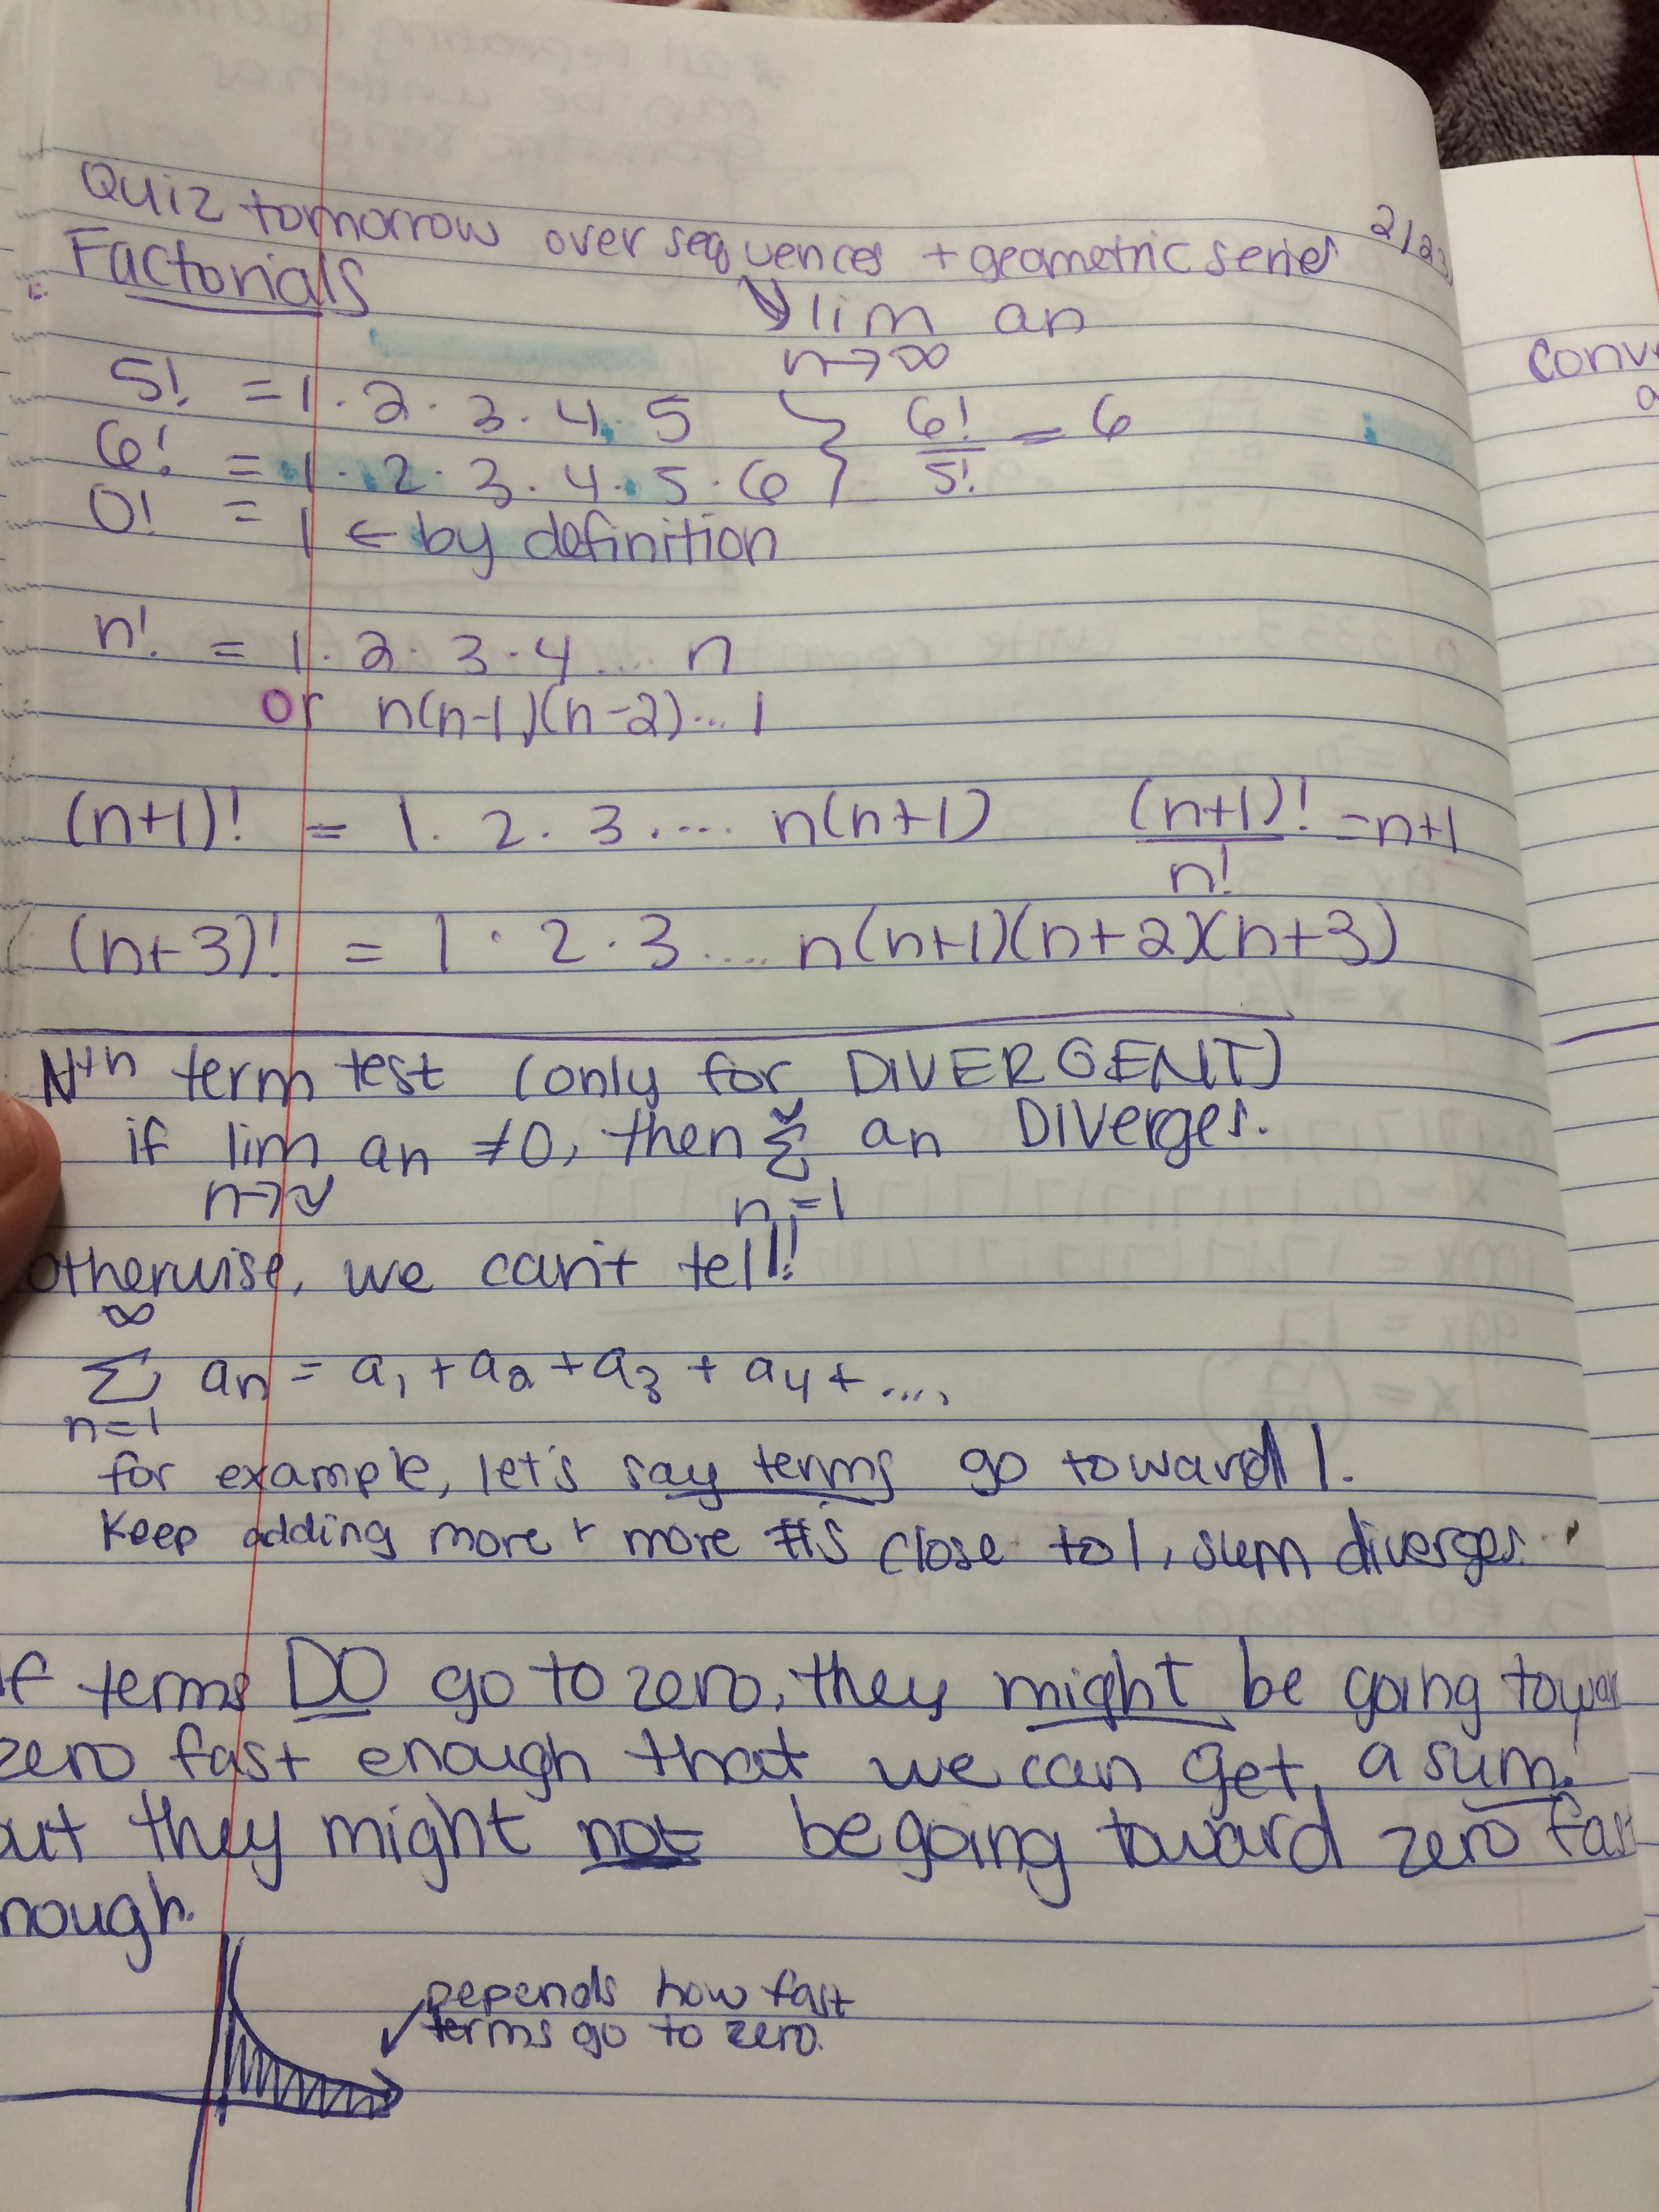 Quiz tomorrow over sequences + geometric series 2/23
Factorials
↘ lim an
n→∞
5! = 1 · 2 · 3 · 4 · 5
6! = 1 · 2 · 3 · 4 · 5 · 6 } 6!/5! = 6
0! = 1 ← by definition
n! = 1 · 2 · 3 · 4 .... n
or n(n-1)(n-2)... 1
(n+1)! = 1 · 2 · 3 .... n(n+1) (n+1)!/n! = n+1
(n+3)! = 1 · 2 · 3 .... n(n+1)(n+2)(n+3)
Nth term test (only for DIVERGENT)
if lim an ≠0, then ∑ an Diverges.
n→∞ n=1
otherwise, we can't tell!
∞
∑ an = a1 + a2 + a3 + a4 + ....
n=1
for example, let's say terms go toward 1.
Keep adding more + more #'s close to 1, sum diverges.
if terms DO go to zero, they might be going towar
zero fast enough that we can get a sum.
ut they might not be going toward zero fas
nough.
Depends how fast
terms go to zero.
conv
a